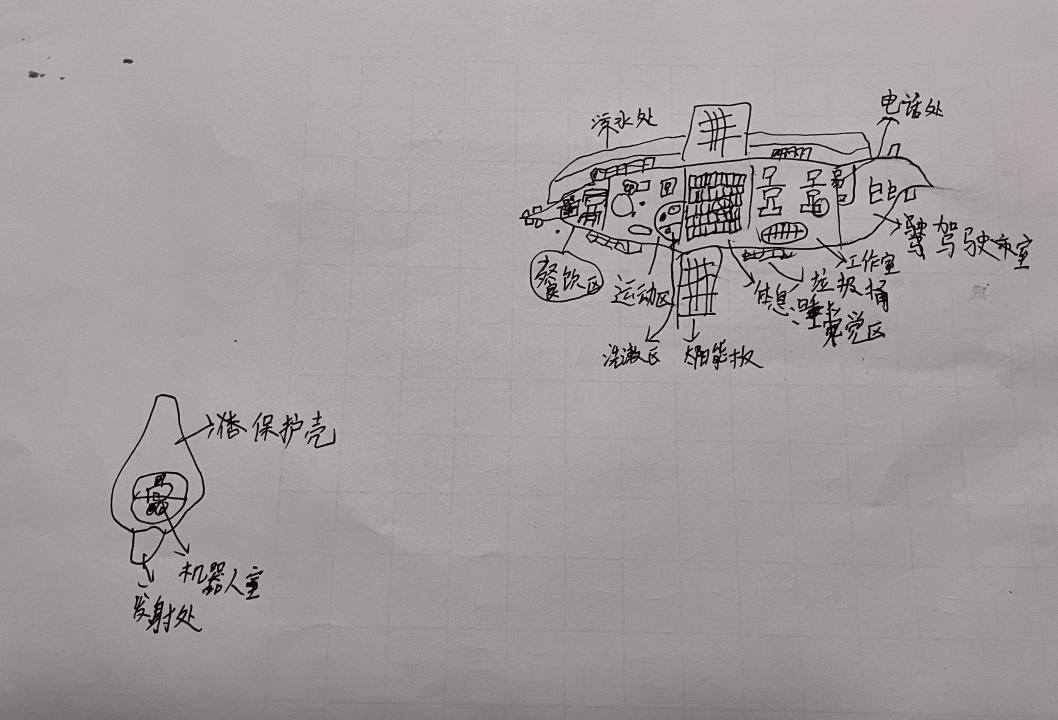 电话处
水处
餐饮区
运动区
休息
睡觉区
垃圾桶
工作室
驾驶室
洗漱区
太阳能板
保护壳
机器人室
发射处